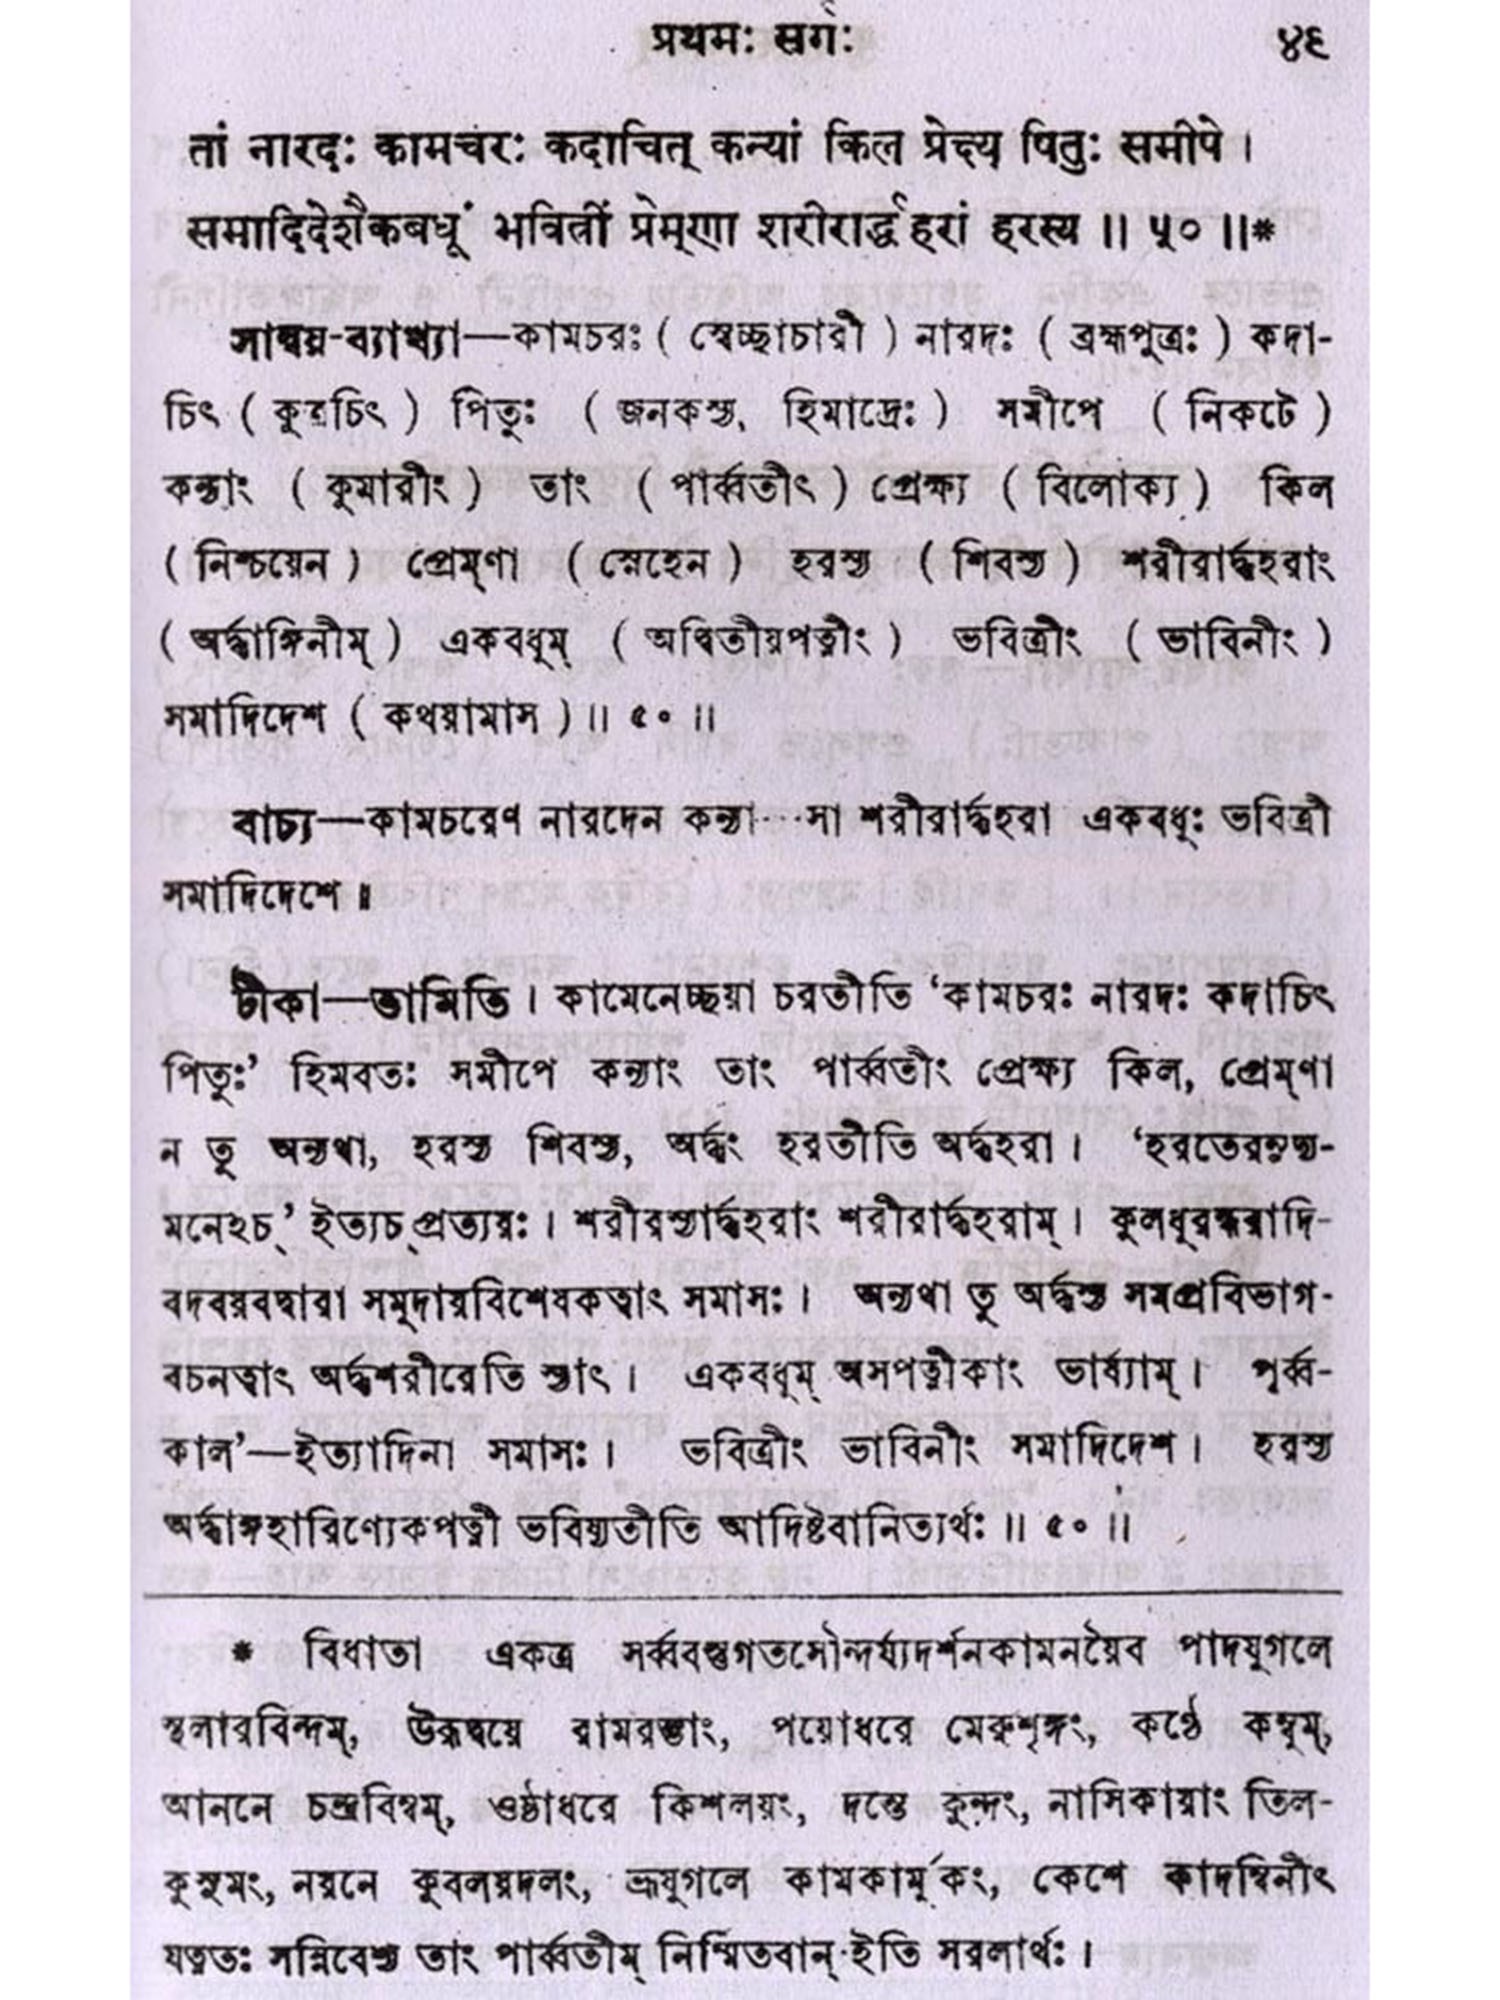 प्रथमः सर्गः ४९
तां नारदः कामचरः कदाचित् कन्यां किल प्रेक्ष्य पितुः समीपे ।
समादिदेशैकबधूं भवित्रीं प्रेम्णा शरीरार्द्धहरां हरस्य ॥ ५० ॥*
সান্বয়-ব্যাখ্যা—কামচরঃ ( স্বেচ্ছাচারী ) নারদঃ ( ব্রহ্মপুত্রঃ ) কদা-
চিৎ ( কুত্রচিৎ ) পিতুঃ ( জনকস্য, হিমাদ্রেঃ ) সমীপে ( নিকটে )
কন্যাং ( কুমারীং ) তাং ( পার্ব্বতীং ) প্রেক্ষ্য ( বিলোক্য ) কিল
( নিশ্চয়েন ) প্রেম্ণা ( স্নেহেন ) হরস্য ( শিবস্য ) শরীরার্দ্ধহরাং
( অর্দ্ধাঙ্গিনীম্ ) একবধূম্ ( অদ্বিতীয়পত্নীং ) ভবিত্রীং ( ভাবিনীং )
সমাদিদেশ ( কথয়ামাস ) ॥ ৫০ ॥
বাচ্য—কামচরেণ নারদেন কন্যা···সা শরীরার্দ্ধহরা একবধূঃ ভবিত্রী
সমাদিদেশে ॥
টীকা—তামিতি । কামেনেচ্ছয়া চরতীতি ‘কামচরঃ নারদঃ কদাচিৎ
পিতুঃ’ হিমবতঃ সমীপে কন্যাং তাং পার্ব্বতীং প্রেক্ষ্য কিল, প্রেম্ণা
ন তু অন্যথা, হরস্য শিবস্য, অর্দ্ধং হরতীতি অর্দ্ধহরা । ‘হরতেরনুদ্য-
মনেঽচ্’ ইত্যচ্ প্রত্যয়ঃ । শরীরস্যার্দ্ধহরাং শরীরার্দ্ধহরাম্ । কুলধুরন্ধরাদি-
বদবয়বদ্বারা সমুদায়বিশেষকত্বাৎ সমাসঃ । অন্যথা তু অর্দ্ধস্য সমপ্রবিভাগ-
বচনত্বাৎ অর্দ্ধশরীরেতি স্যাৎ । একবধূম্ অসপত্নীকাং ভার্য্যাম্ । পূর্ব্ব-
কাল’—ইত্যাদিনা সমাসঃ । ভবিত্রীং ভাবিনীং সমাদিদেশ । হরস্য
অর্দ্ধাঙ্গহারিণ্যেকপত্নী ভবিষ্যতীতি আদিষ্টবানিত্যর্থঃ ॥ ৫০ ॥
* বিধাতা একত্র সর্ব্ববস্তুগতসৌন্দর্য্যদর্শনকামনয়ৈব পাদযুগলে
স্থলারবিন্দম্, উরুদ্বয়ে রামরম্ভাং, পয়োধরে মেরুশৃঙ্গং, কণ্ঠে কম্বুম্,
আননে চন্দ্রবিম্বম্, ওষ্ঠাধরে কিশলয়ং, দন্তে কুন্দং, নাসিকায়াং তিল-
কুসুমং, নয়নে কুবলয়দলং, ভ্রূযুগলে কামকার্মুকং, কেশে কাদম্বিনীং
যত্নতঃ সন্নিবেশ্য তাং পার্ব্বতীম্ নির্ম্মিতবান্ ইতি সরলার্থঃ ।